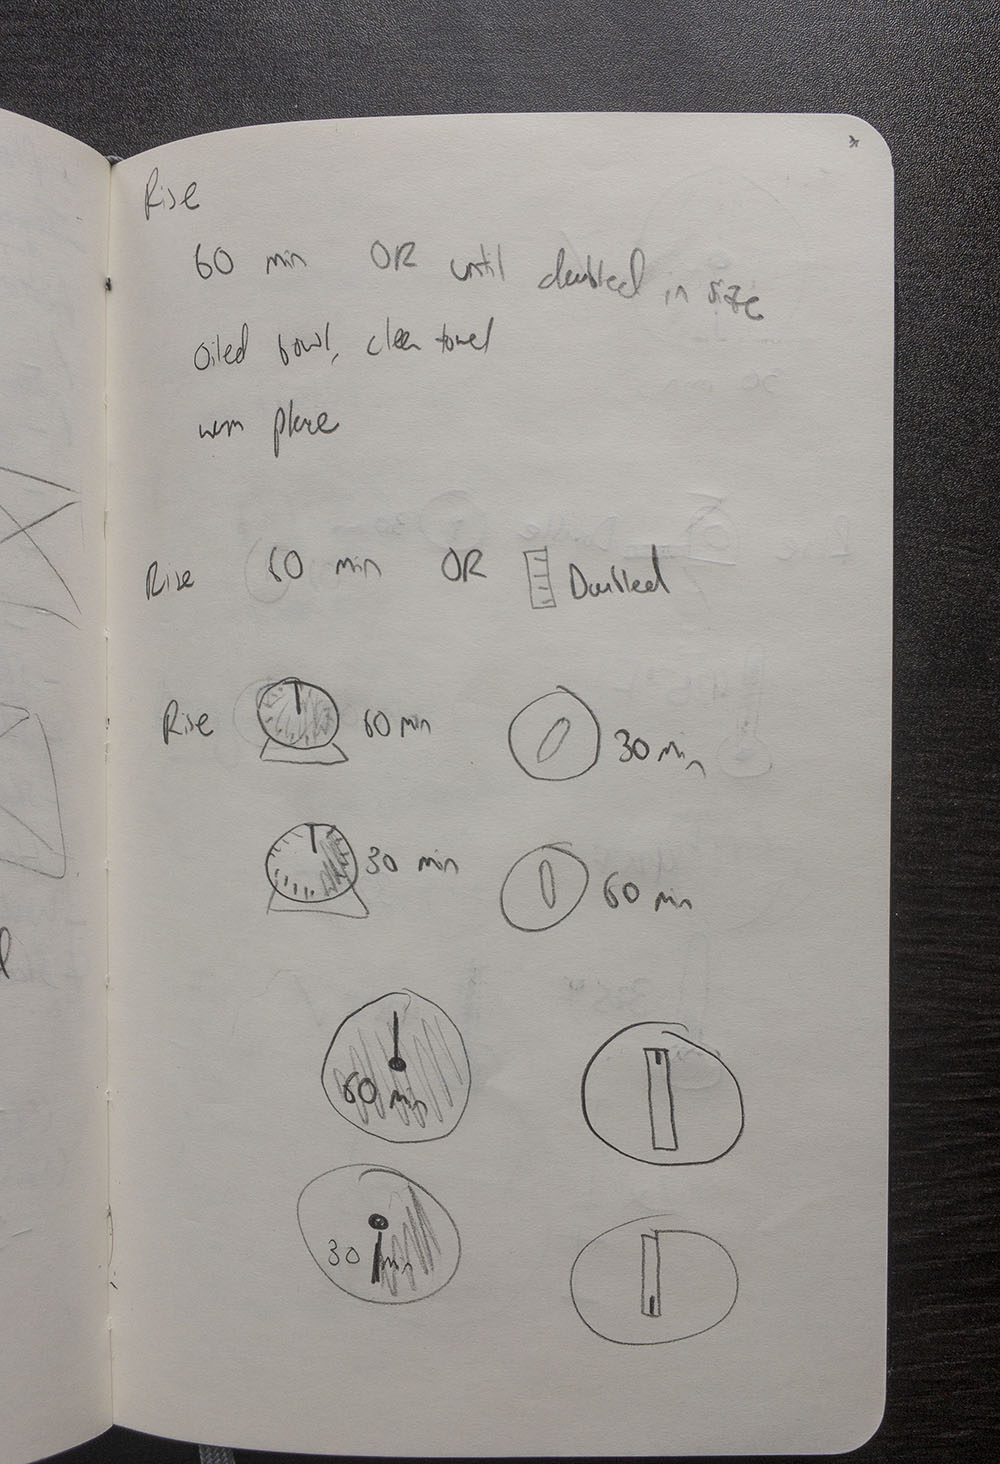 Rise
60 min OR until doubled in size
Oiled bowl, clean towel
warm place
Rise 60 min OR Doubled
Rise 60 min 30 min
30 min 60 min
60 min
30 min